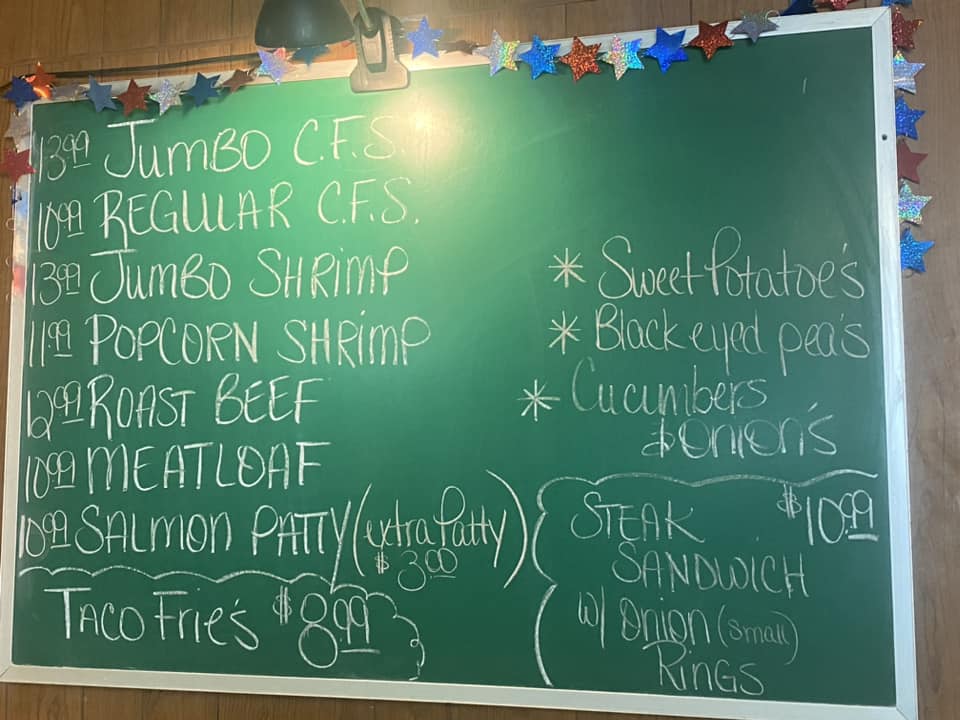 13.99 JUMBO C.F.S.
10.99 REGULAR C.F.S.
13.99 JUMBO SHRIMP
11.99 POPCORN SHRIMP
12.99 ROAST BEEF
10.99 MEATLOAF
10.99 SALMON PATTY (extra Patty)
$3.00
TACO Frie's $8.99
* Sweet Potatoe's
* Black eyed pea's
* Cucumbers
& onion's
STEAK $10.99
SANDWICH
w/ Onion (small)
Rings